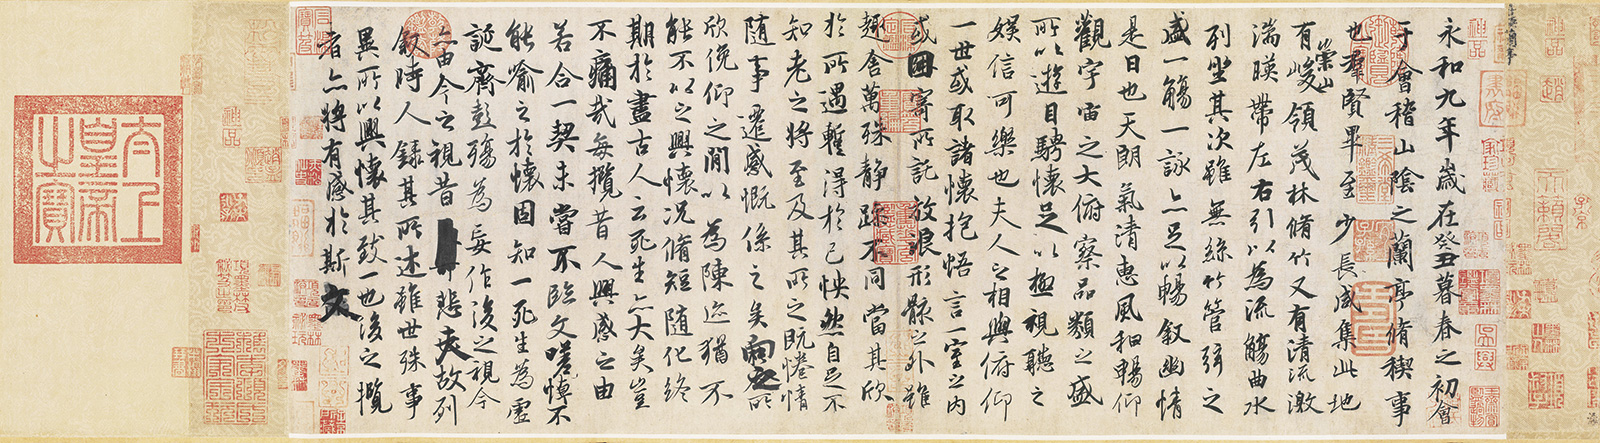 永和九年歲在癸丑暮春之初會
于會稽山陰之蘭亭脩稧事
也群賢畢至少長咸集此地
有崇山峻領茂林脩竹又有清流激
湍暎帶左右引以為流觴曲水
列坐其次雖無絲竹管弦之
盛一觴一詠亦足以暢敘幽情
是日也天朗氣清惠風和暢仰
觀宇宙之大俯察品類之盛
所以遊目騁懷足以極視聽之
娛信可樂也夫人之相與俯仰
一世或取諸懷抱悟言一室之內
或因寄所託放浪形骸之外雖
趣舍萬殊靜躁不同當其欣
於所遇暫得於己怏然自足不
知老之將至及其所之既惓情
隨事遷感慨係之矣向之所
欣俛仰之閒以為陳迹猶不
能不以之興懷況脩短隨化終
期於盡古人云死生亦大矣豈
不痛哉每攬昔人興感之由
若合一契未嘗不臨文嗟悼不
能喻之於懷固知一死生為虛
誕齊彭殤為妄作後之視今
亦由今之視昔悲夫故列
敘時人錄其所述雖世殊事
異所以興懷其致一也後之攬
者亦將有感於斯文
神品
太上皇帝之寶